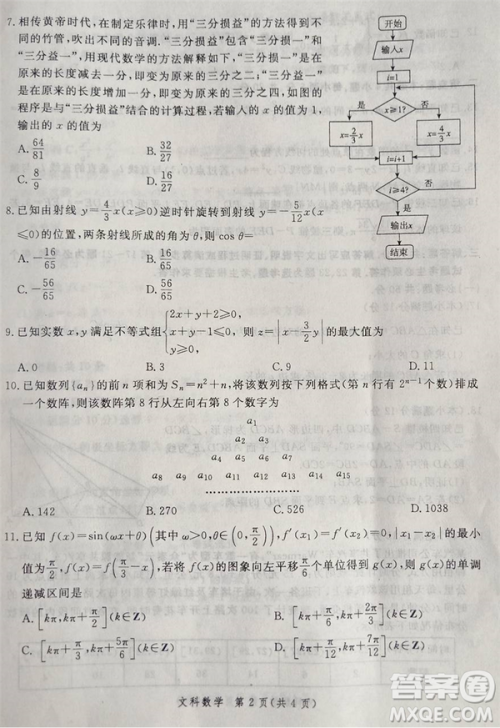 7. 相传黄帝时代，在制定乐律时，用“三分损益”的方法得到不
同的竹管，吹出不同的音调. “三分损益”包含“三分损一”和
“三分益一”，用现代数学的方法解释如下，“三分损一”是在
原来的长度减去一分，即变为原来的三分之二；“三分益一”
是在原来的长度增加一分，即变为原来的三分之四，如图的
程序是与“三分损益”结合的计算过程，若输入的 x 的值为 1，
输出的 x 的值为
A. 64/81 B. 32/27
C. 8/9 D. 16/27
开始
输入x
i=1
x≥1?
是 否
x=2/3x x=4/3x
i=i+1
i≥4?
否
是
输出x
结束
8. 已知由射线 y=4/3x(x≥0)逆时针旋转到射线 y=-5/12x(x
≤0)的位置，两条射线所成的角为 θ，则 cos θ=
A. -16/65 B. ±16/65
C. -56/65 D. ±56/65
9. 已知实数 x, y 满足不等式组{2x+y+2≥0, x+y-1≤0, y≥0, 则 z=|x-3/2y|的最大值为
A. 0 B. 1 C. 9 D. 11
10. 已知数列{aₙ}的前 n 项和为 Sₙ=n²+n，将该数列按下列格式(第 n 行有 2ⁿ⁻¹ 个数)排成
一个数阵，则该数阵第 8 行从左向右第 8 个数字为
a₁
a₂ a₃
a₄ a₅ a₆ a₇
a₈ a₉ a₁₀ a₁₁ a₁₂ a₁₃ a₁₄ a₁₅
…………………
A. 142 B. 270 C. 526 D. 1038
11. 已知 f(x)=sin(ωx+θ)(其中 ω>0, θ∈(0, π/2)), f′(x₁)=f′(x₂)=0, |x₁-x₂|的最小
值为 π/2, f(x)=f(π/3-x), 若将 f(x)的图象向左平移 π/6 个单位得到 g(x), 则 g(x)的单调
递减区间是
A. [kπ, kπ+π/2](k∈Z) B. [kπ+π/6, kπ+2π/3](k∈Z)
C. [kπ+π/3, kπ+5π/6](k∈Z) D. [kπ+π/12, kπ+7π/12](k∈Z)
文科数学 第 2 页(共 4 页)